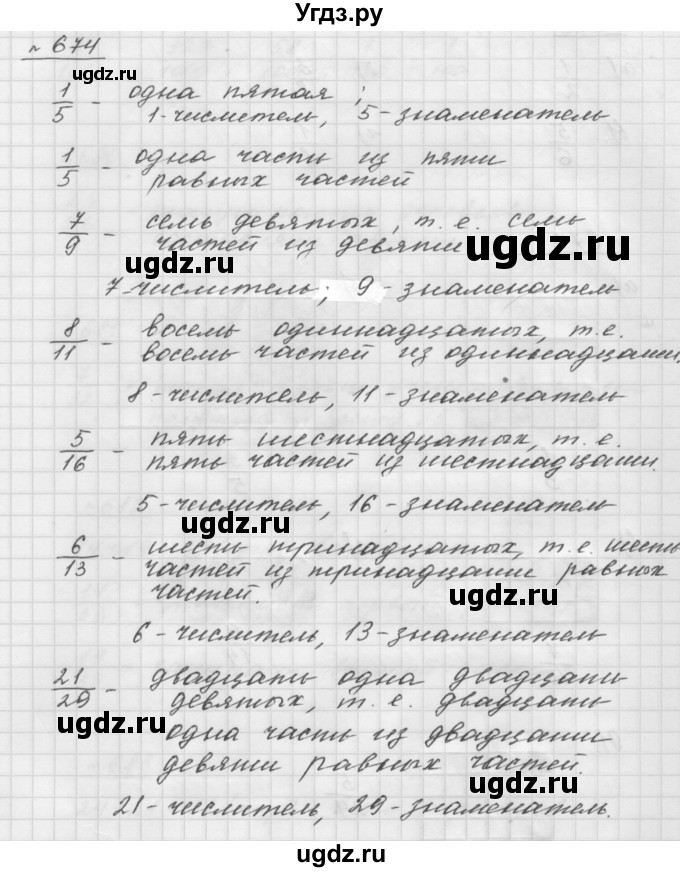 Угдз.ру
№ 674
ugdz.ru
1/5 - одна пятая ;
1-числитель, 5-знаменатель
1/5 - одна часть из пяти
равных частей
7/9 - семь девятых, т.е. семь
частей из девяти
ugdz.ru
ugdz.ru
7-числитель; 9-знаменатель
8/11 - восемь одиннадцатых, т.е.
восемь частей из одиннадцати,
ugdz.ru
8-числитель, 11-знаменатель
5/16 - пять шестнадцатых, т.е.
пять частей из шестнадцати.
5-числитель, 16-знаменатель
ugdz.ru
6/13 - шесть тринадцатых, т.е. шесть
частей из тринадцати равных
частей.
ugdz.ru
6-числитель, 13-знаменатель
21/29 - двадцать одна двадцать
девятых, т.е. двадцать
ugdz.ru
одна часть из двадцати
девяти равных частей.
ugdz.ru
21-числитель, 29-знаменатель.
ugdz.ru